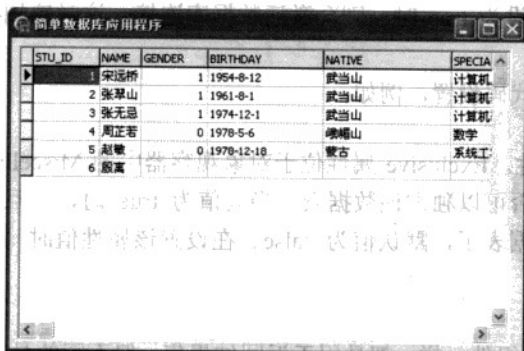 简单数据库应用程序
STU_ID NAME GENDER BIRTHDAY NATIVE SPECIA
1 宋远桥 1 1954-8-12 武当山 计算机
2 张翠山 1 1961-8-1 武当山 计算机
3 张无忌 1 1974-12-1 武当山 计算机
4 周芷若 0 1978-5-6 峨嵋山 数学
5 赵敏 0 1978-12-18 蒙古 系统工
6 殷离